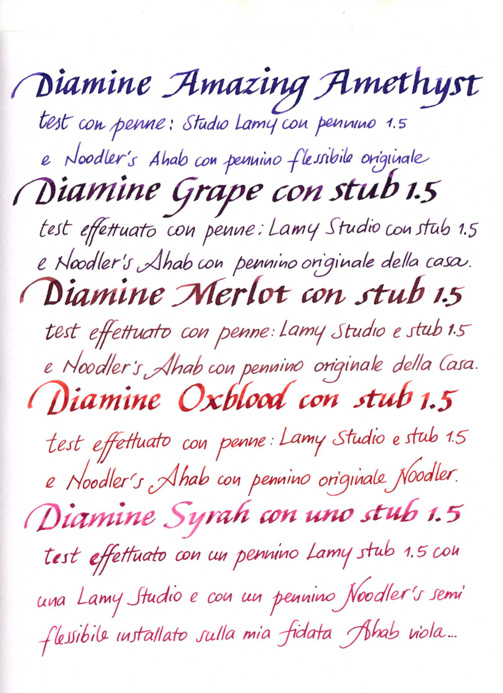 Diamine Amazing Amethyst
test con penne: Studio Lamy con pennino 1.5
e Noodler's Ahab con pennino flessibile originale
Diamine Grape con stub 1.5
test effettuato con penne: Lamy Studio con stub 1.5
e Noodler's Ahab con pennino originale della casa.
Diamine Merlot con stub 1.5
test effettuato con penne: Lamy Studio e stub 1.5
e Noodler's Ahab con pennino originale della Casa.
Diamine Oxblood con stub 1.5
test effettuato con penne: Lamy Studio e stub 1.5
e Noodler's Ahab con pennino originale Noodler.
Diamine Syrah con uno stub 1.5
test effettuato con un pennino Lamy stub 1.5 con
una Lamy Studio e con un pennino Noodler's semi
flessibile installato sulla mia fidata Ahab viola...